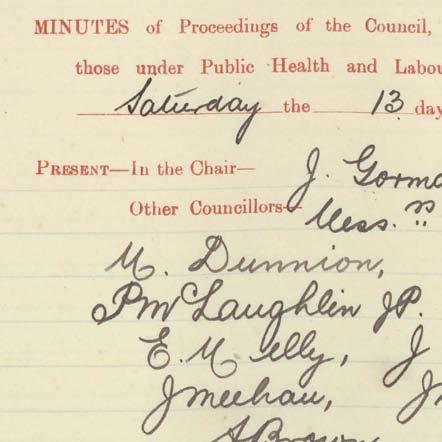 MINUTES of Proceedings of the Council,
those under Public Health and Labou
Saturday the 13 day
PRESENT—In the Chair— J. Gorma
Other Councillors— Mess.rs
M. Dunnion,
P McLaughlin JP.
E. M elly, J
J Meehan, J
Brown